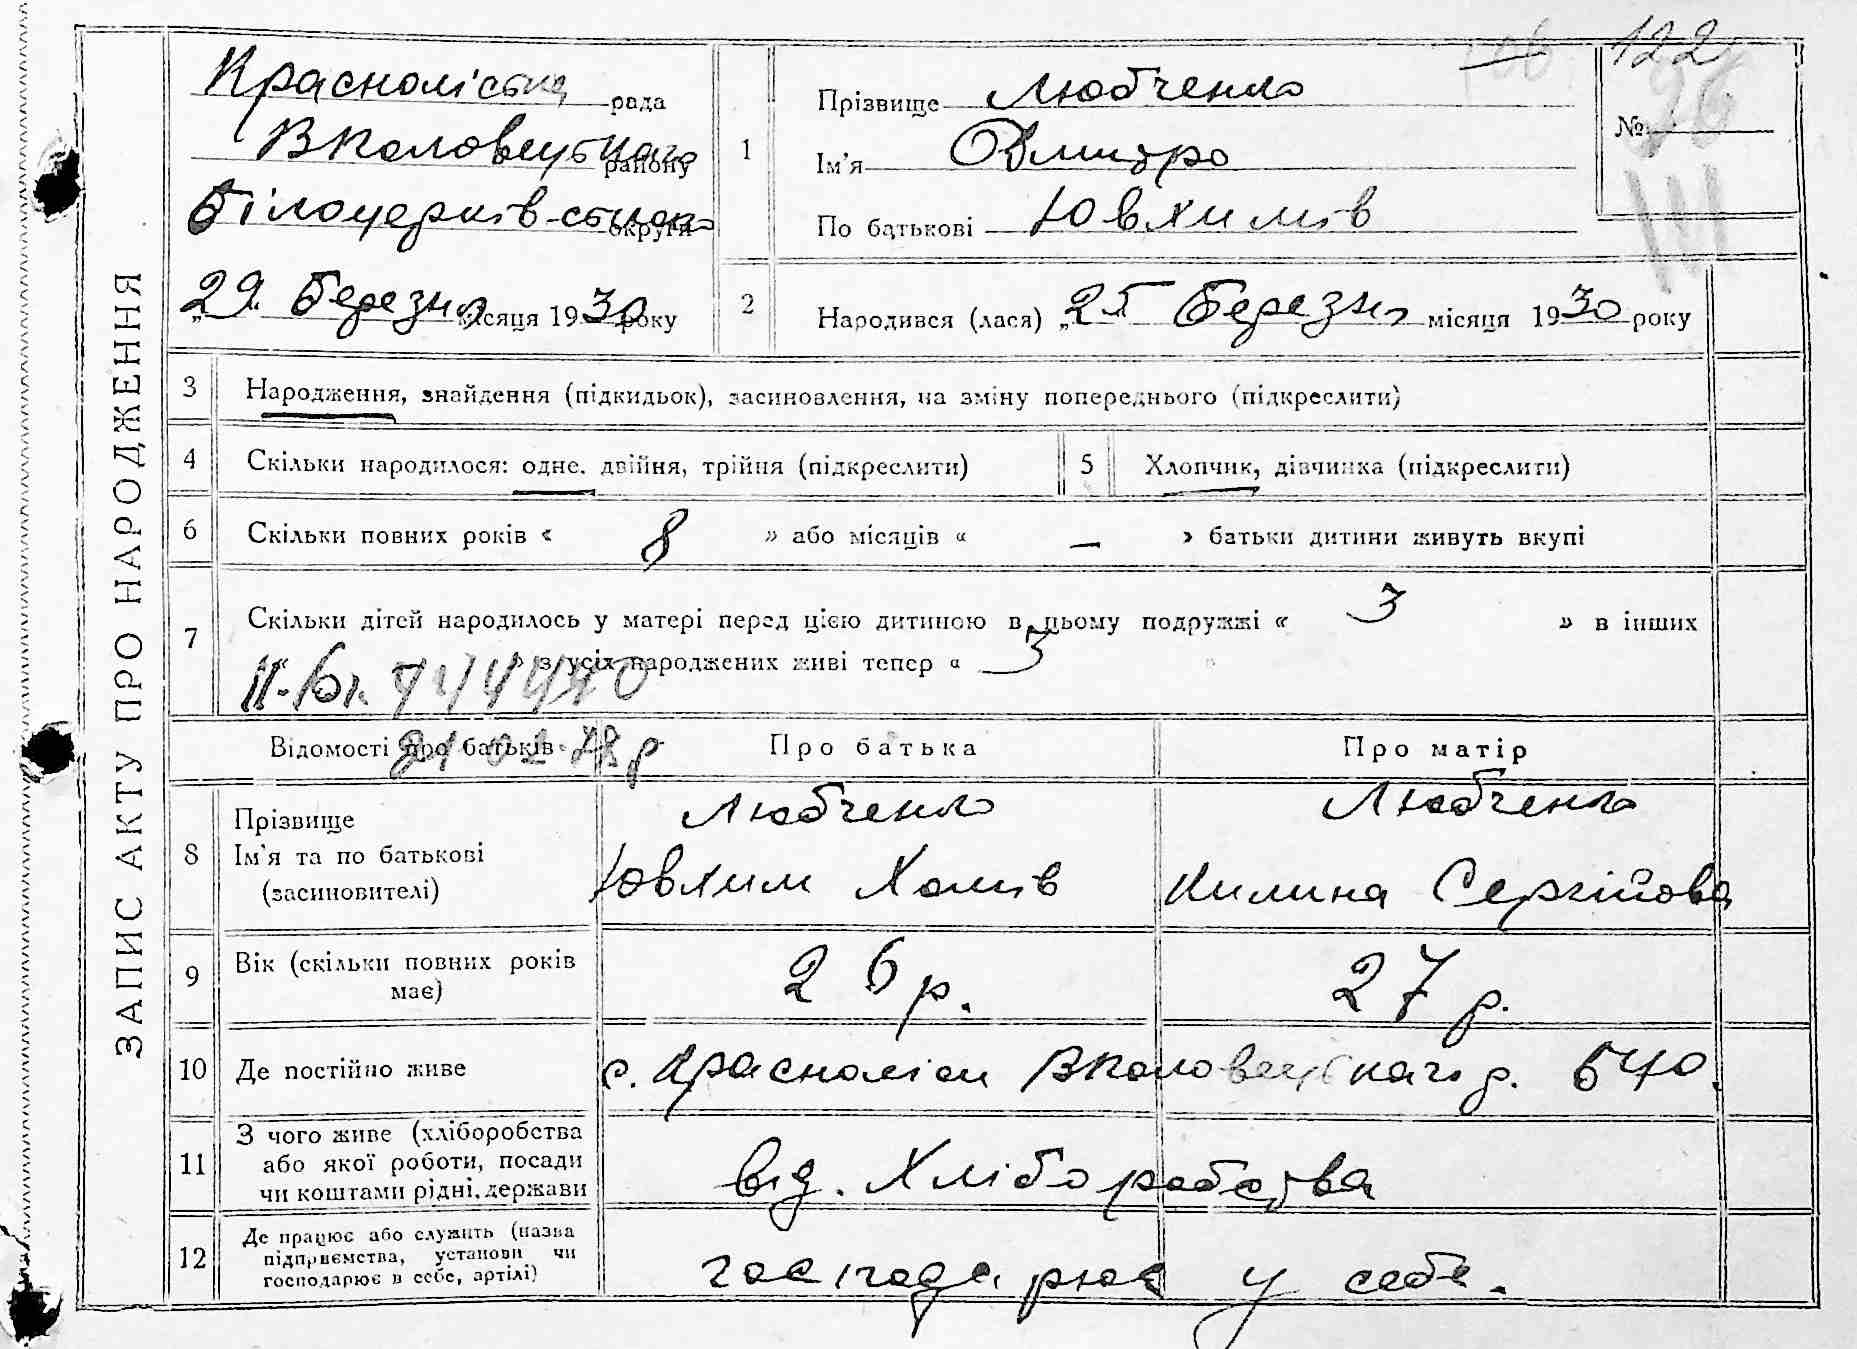 ЗАПИС АКТУ ПРО НАРОДЖЕННЯ
Красноліська рада
Вполовецького району
Білоцерків-ської округи
„29“ Березня місяця 1930 року
122
№ 96
III
1 Прізвище Любченко
Ім’я Дмитро
По батькові Ювхимів
2 Народився (лася) „25 Березня місяця 1930 року
3 Народження, знайдення (підкидьок), засиновлення, на зміну попереднього (підкреслити)
4 Скільки народилося: одне, двійня, трійня (підкреслити) 5 Хлопчик, дівчинка (підкреслити)
6 Скільки повних років « 8 » або місяців « — » батьки дитини живуть вкупі
7 Скільки дітей народилось у матері перед цією дитиною в цьому подружжі « 3 » в інших
з усіх народжених живі тепер « 3
Відомості про батьків Про батька Про матір
8 Прізвище Любченко Любченко
Ім’я та по батькові Ювхим Хомів Килина Сергійова
(засиновителі)
9 Вік (скільки повних років 26 р. 27 р.
має)
10 Де постійно живе с. Краснолісы Вполовецького р. БЧО.
11 З чого живе (хліборобства
або якої роботи, посади від. Хліборобства
чи коштами рідні, держави
12 Де працює або служить (назва
підприємства, установи чи господарює у себе.
господарює в себе, артілі)